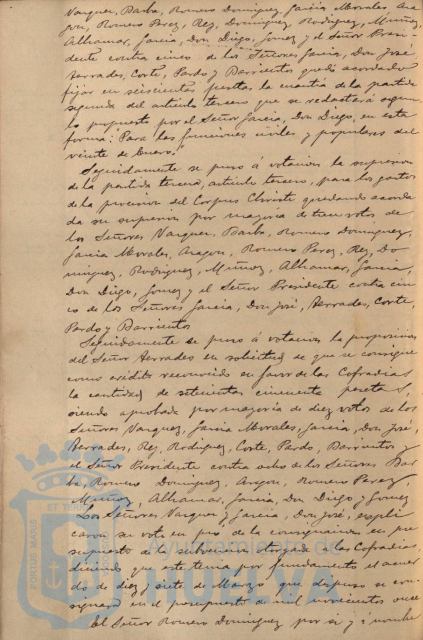 Vazquez, Barba, Romero Dominguez, Garcia Morales, Ara-
gon, Romero Perez, Rey, Dominguez Rodriguez, Muñoz,
Alhamar, Garcia, Don Diego, Gomez y el Señor Presi-
dente contra cinco de los Señores Garcia, Don José
Terrades, Corte, Pardo y Barrientos quedó acordado
fijar en seiscientas pesetas, la cuantia de la partida
segunda del articulo tercero que se redactará segun
lo propuesto por el Señor Garcia, Don Diego, en esta
forma: "Para las funciones civiles y populares del
veinte de Enero."
Seguidamente se puso á votacion la supresion
de la partida tercera, articulo tercero, para los gastos
de la procesion del Corpus Christi quedando acorda
da su supresion por mayoria de trece votos de
los Señores Vazquez, Barba, Romero Dominguez,
Garcia Morales, Aragon, Romero Perez, Rey, Do
minguez, Rodriguez, Muñoz, Alhamar, Garcia,
Don Diego, Gomez y el Señor Presidente contra cin
co de los Señores Garcia, Don José, Terrades, Corte,
Pardo y Barrientos
Seguidamente se puso á votacion la proposicion
del Señor Terrades en solicitud de que se consigne
como crédito reconocido en favor de las Cofradias
la cantidad de setecientas cincuenta pesetas,
siendo aprobada por mayoria de diez votos de los
Señores Vazquez, Garcia Morales, Garcia, Don José,
Terrades, Rey, Rodriguez, Corte, Pardo, Barrientos y
el Señor Presidente contra ocho de los Señores Bar
ba, Romero Dominguez, Aragon, Romero Perez,
Muñoz, Alhamar, Garcia, Don Diego y Gomez
Los Señores Vazquez y Garcia, Don José, expli
caron su voto en pro de la consignacion en pre
supuesto de la subvencion otorgada á las Cofradias,
diciendo que este tenia por fundamento el acuer
do de diez y siete de Marzo que dispuso se con
signara en el presupuesto de mil novecientos once
El Señor Romero Dominguez por si y á nombre
PORTUS MARIS
ET TERRAE
Ayuntamiento de
HUELVA